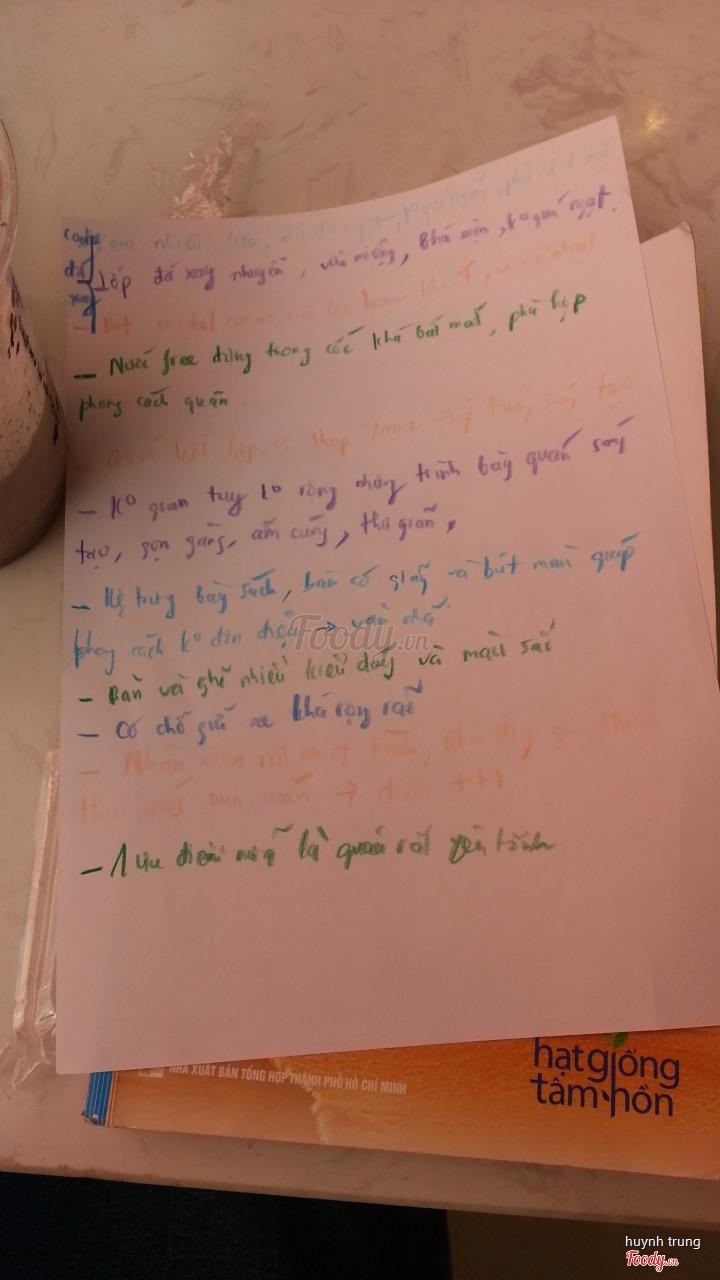 cacao
đá
xay
kem nhiều, béo,
Lớp đá xay nhuyễn, vừa miệng, khá mịn, ko quá ngọt.
- Nước free đựng trong cốc khá bắt mắt, phù hợp
phong cách quán.
- Quán kết hợp vs shop → ý tưởng sáng tạo
- Ko gian tuy ko rộng nhưng trình bày quán sáng
tạo, gọn gàng, ấm cúng, thư giãn,
- Kệ trưng bày sách, bàn có giấy và bút màu giúp
phong cách ko đơn điệu →
- Bàn và ghế nhiều kiểu dáng và màu sắc
- Có chỗ giữ xe khá rộng rãi
- Nhân viên rất nhiệt tình, giới thiệu
thức uống → điểm +++
- 1 ưu điểm nữa là quán rất yên tĩnh
Foody.vn
NHÀ XUẤT BẢN TỔNG HỢP THÀNH PHỐ HỒ CHÍ MINH
hạt giống
tâm hồn
huynh trung
Foody.vn